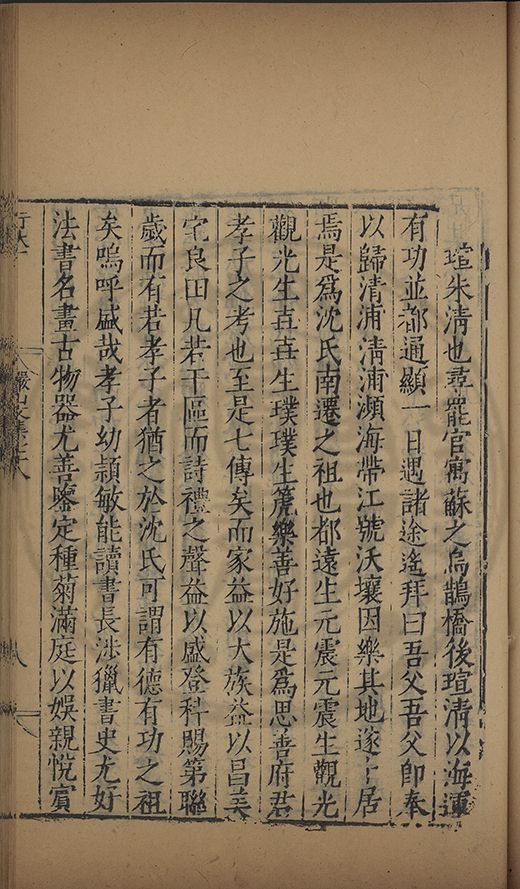 瑄朱淸也尋罷官寓蘇之烏鵲橋後瑄淸以海運
有功並都通顯一日遇諸途遙拜曰吾父吾父即奉
以歸淸浦淸浦瀕海帶江號沃壤因樂其地遂卜居
焉是爲沈氏南遷之祖也都遠生元震元震生觀光
觀光生壴壴生璞璞生篪樂善好施是爲思善府君
孝子之考也至是七傳矣而家益以大族益以昌美
宅良田凡若干區而詩禮之聲益以盛登科賜第聯
歲而有若孝子者猶之於沈氏可謂有德有功之祖
矣嗚呼盛哉孝子幼頴敏能讀書長涉獵書史尤好
法書名畫古物器尤善鑒定種菊滿庭以娛親悅賓